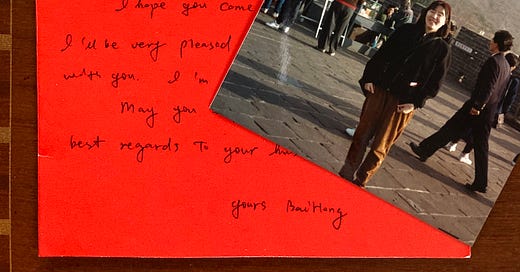 I hope you come
I'll be very pleased
with you. I'm
May you
best regards To your
yours BaiHang